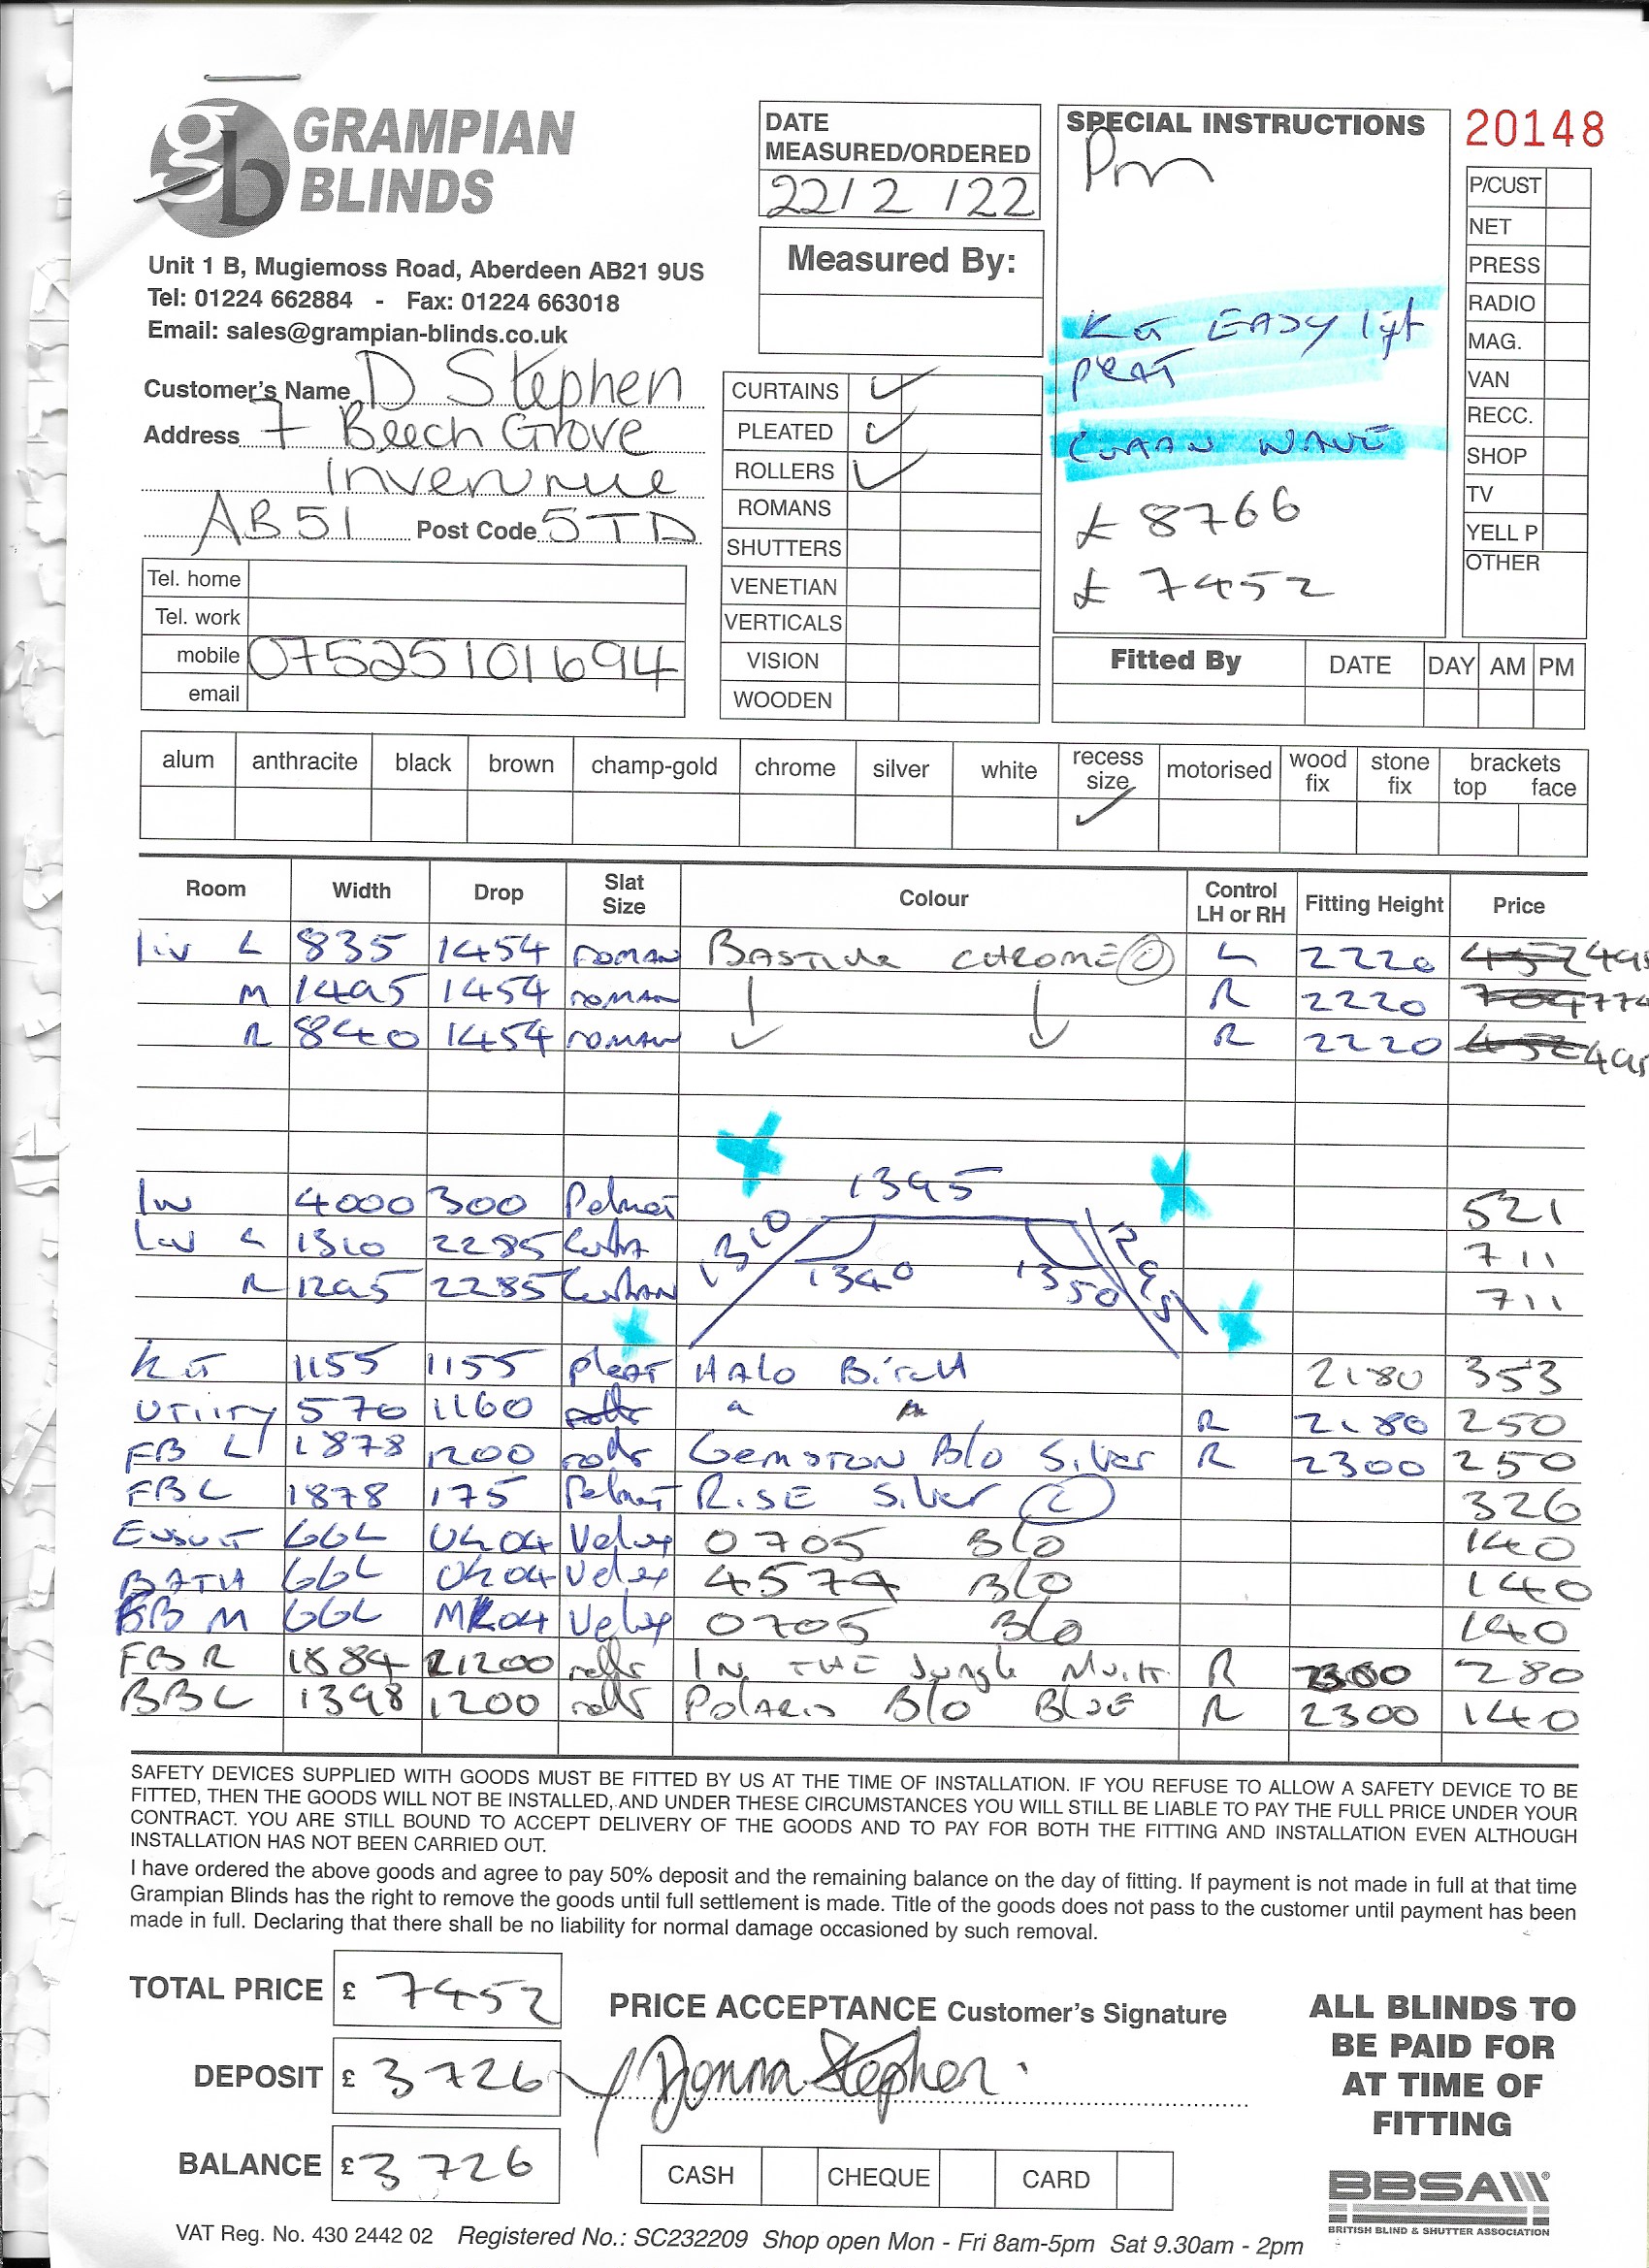 GRAMPIAN
BLINDS
Unit 1 B, Mugiemoss Road, Aberdeen AB21 9US
Tel: 01224 662884 - Fax: 01224 663018
Email: sales@grampian-blinds.co.uk
DATE
MEASURED/ORDERED
22/2/22
Measured By:
SPECIAL INSTRUCTIONS
Pm
Kit EASY lift
pleat
WAVE
£ 8766
£ 7452
20148
P/CUST
NET
PRESS
RADIO
MAG.
VAN
RECC.
SHOP
TV
YELL P
OTHER
Customer's Name D Stephen
Address 7 Beech Grove
Inverurie
AB51 Post Code 5TD
Tel. home
Tel. work
mobile 07525101694
email
CURTAINS ✓
PLEATED ✓
ROLLERS ✓
ROMANS
SHUTTERS
VENETIAN
VERTICALS
VISION
WOODEN
Fitted By DATE DAY AM PM
alum anthracite black brown champ-gold chrome silver white recess size motorised wood fix stone fix brackets top face
✓
Room Width Drop Slat Size Colour Control LH or RH Fitting Height Price
liv L 835 1454 roman CHROME C L 2220 452
M 1495 1454 roman R 2220 704 774
R 840 1454 roman R 2220 452
4000 300 Pelmet 1395 521
L 1310 2285 1310 1340 1350 1295 711
R 1295 2285 Curtain 711
Kit 1155 1155 pleat HALO Birch 2180 353
Utility 570 1160 " " R 2180 250
FB L 1878 1200 rollr Gemston B/o Silver R 2300 250
FB L 1878 175 Pelmet RISE Silver C 326
Ensuit GGL UK04 Velux 0705 B/o 140
BATH GGL UK04 Velux 4574 B/o 140
BB M GGL MK04 Velux 0705 B/o 140
FB R 1884 1200 rollr IN THE Jungle Multi R 2300 280
BB L 1398 1200 rollr POLARIS B/o BLUE R 2300 140
SAFETY DEVICES SUPPLIED WITH GOODS MUST BE FITTED BY US AT THE TIME OF INSTALLATION. IF YOU REFUSE TO ALLOW A SAFETY DEVICE TO BE
FITTED, THEN THE GOODS WILL NOT BE INSTALLED, AND UNDER THESE CIRCUMSTANCES YOU WILL STILL BE LIABLE TO PAY THE FULL PRICE UNDER YOUR
CONTRACT. YOU ARE STILL BOUND TO ACCEPT DELIVERY OF THE GOODS AND TO PAY FOR BOTH THE FITTING AND INSTALLATION EVEN ALTHOUGH
INSTALLATION HAS NOT BEEN CARRIED OUT.
I have ordered the above goods and agree to pay 50% deposit and the remaining balance on the day of fitting. If payment is not made in full at that time
Grampian Blinds has the right to remove the goods until full settlement is made. Title of the goods does not pass to the customer until payment has been
made in full. Declaring that there shall be no liability for normal damage occasioned by such removal.
TOTAL PRICE £ 7452
DEPOSIT £ 3726
BALANCE £ 3726
PRICE ACCEPTANCE Customer's Signature
Donna Stephen
CASH CHEQUE CARD
ALL BLINDS TO
BE PAID FOR
AT TIME OF
FITTING
BBSA
BRITISH BLIND & SHUTTER ASSOCIATION
VAT Reg. No. 430 2442 02 Registered No.: SC232209 Shop open Mon - Fri 8am-5pm Sat 9.30am - 2pm